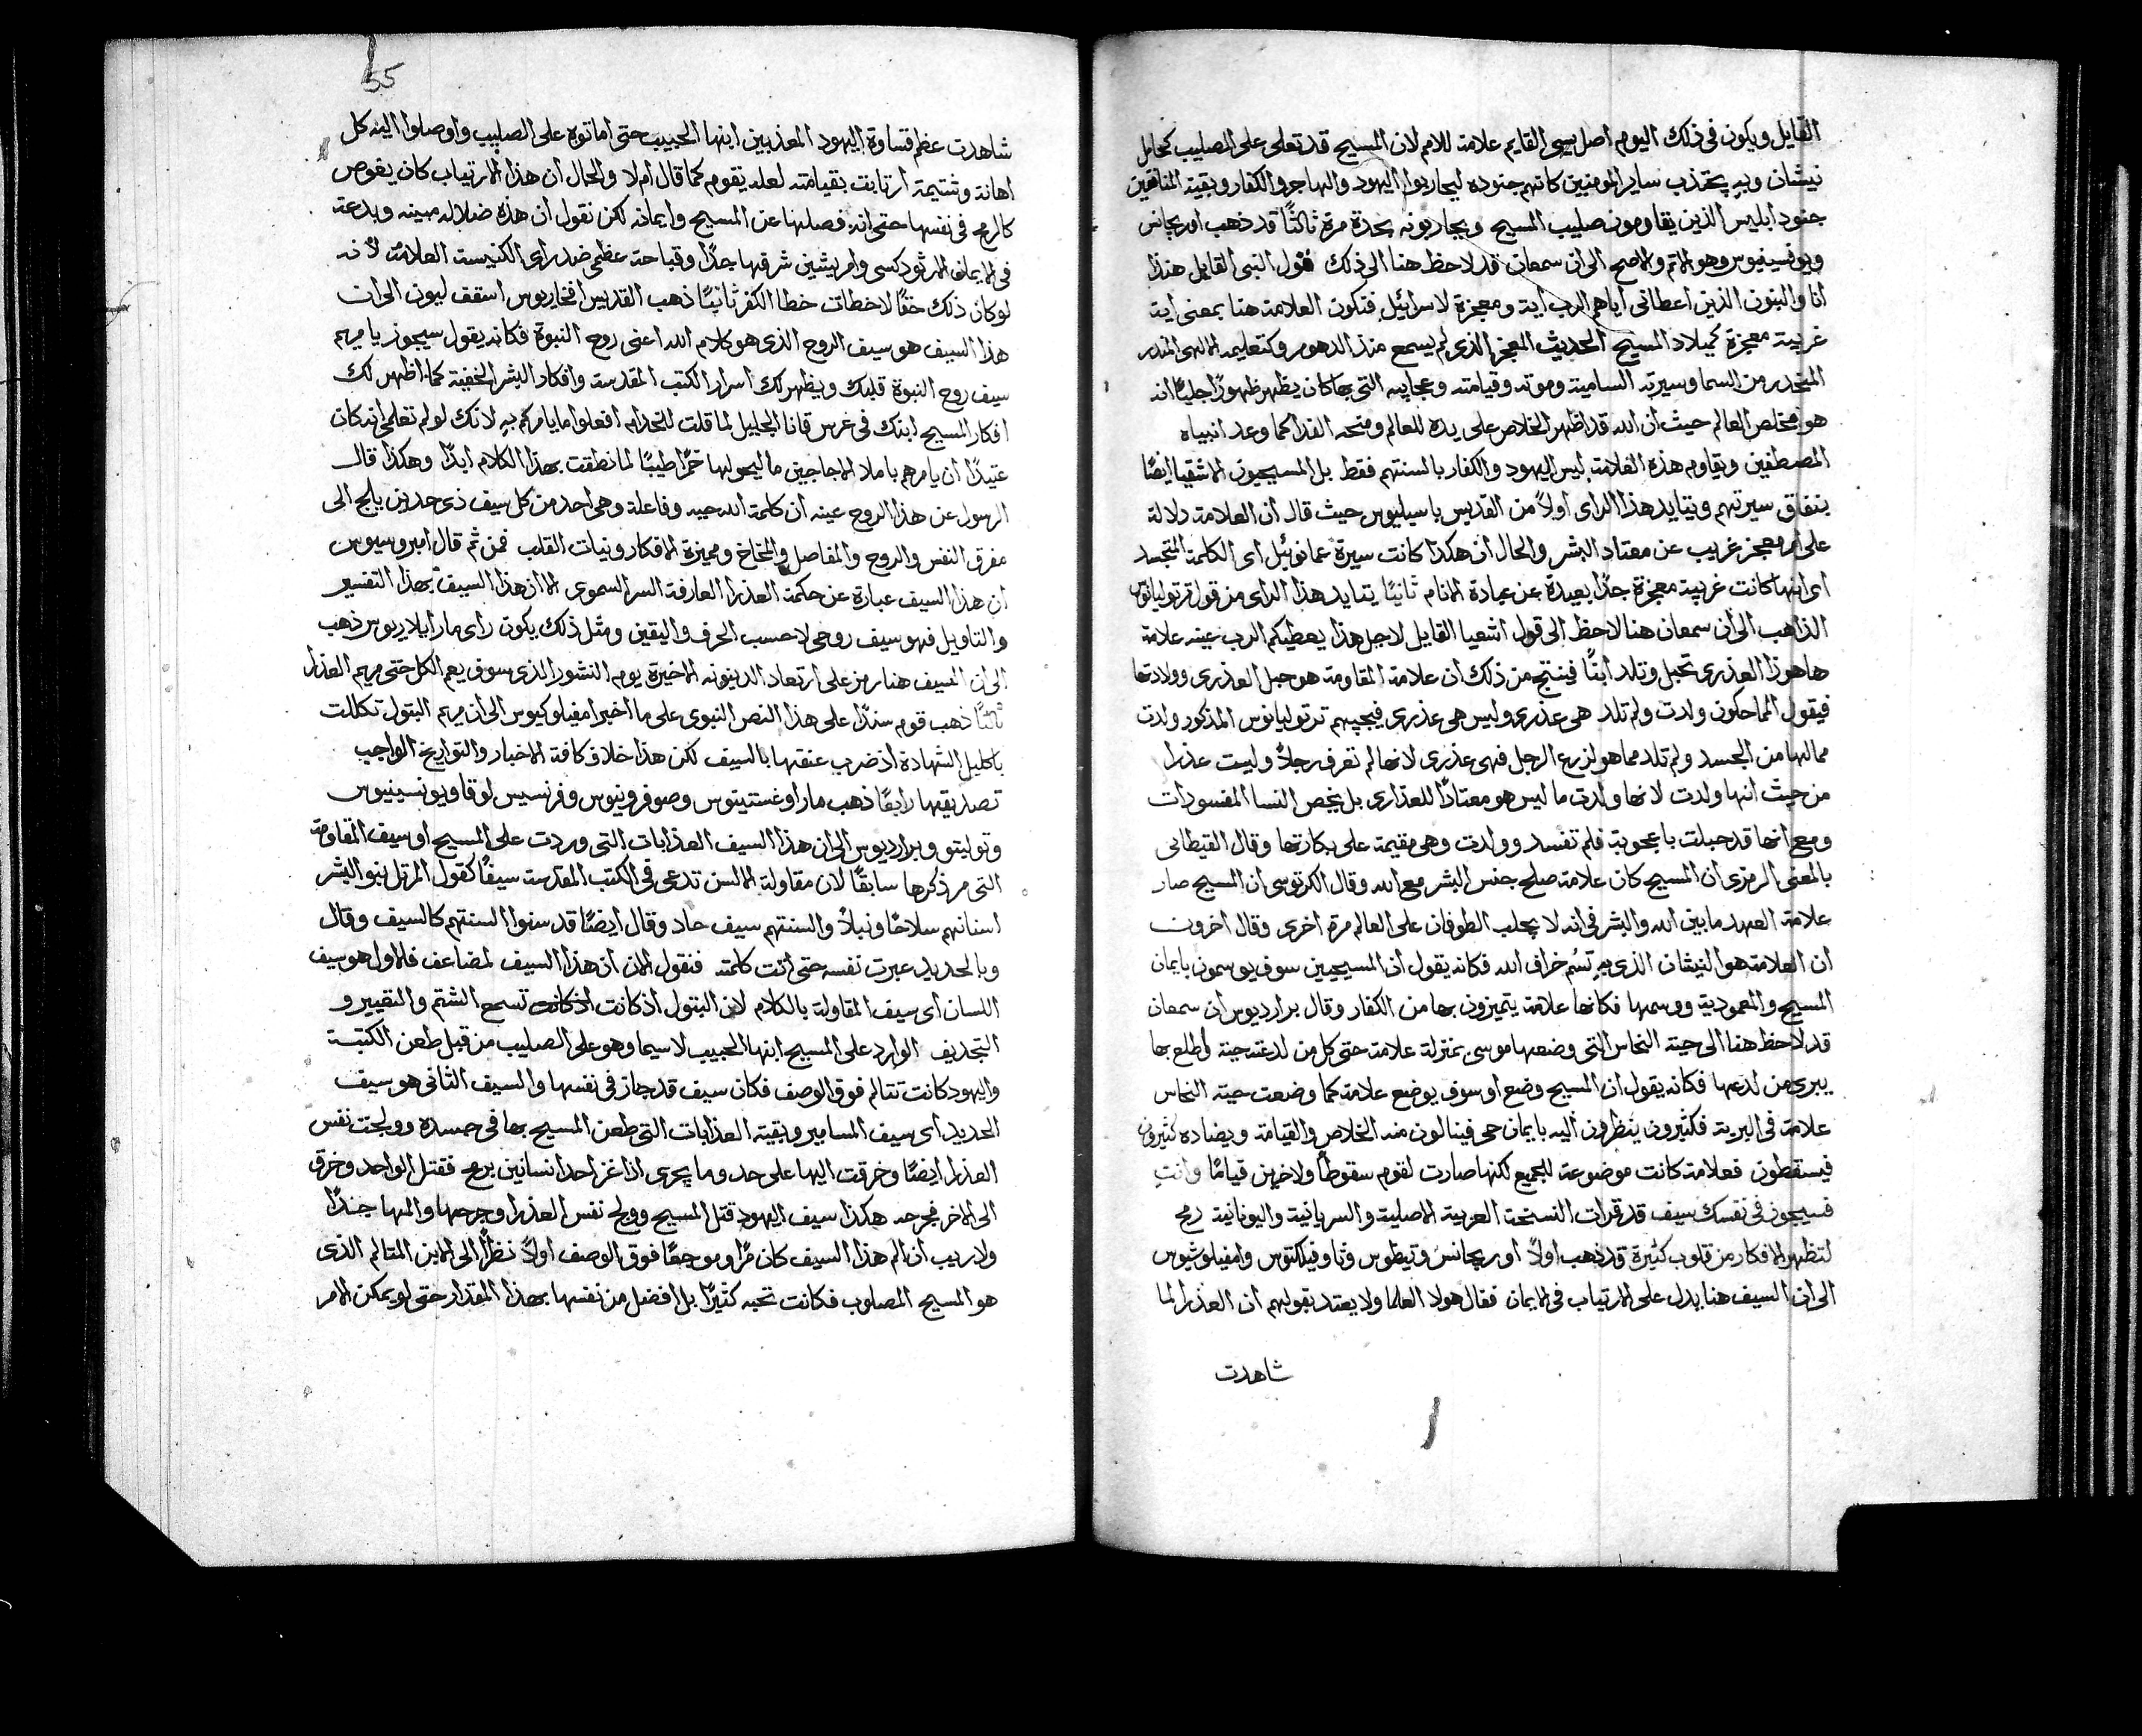 القايل ويكون في ذلك اليوم اصل يسى القايم علامة للامم لان المسيح قد تعلى على الصليب كحامل
نيشان وبه يجتذب ساير المومنين كانهم جنوده ليحاربوا اليهود والهاجر والكفار وبقية المنافقين
جنود ابليس الذين يقاومون صليب المسيح ويحاربونه بحدة مرة ثالثًا قد ذهب اوريجانس
ويونسينيوس وهو الاتم والاصح الى ان سمعان قد لاحظ هنا الى ذلك قول النبي القايل هنذا
انا والبنون الذين اعطاني اياهم الرب اية ومعجزة لاسرائيل فتكون العلامة هنا بمعنى اية
غريبة معجزة كميلاد المسيح الحديث المعجز الذي لم يسمع منذ الدهور وكتعليمه الالهي
المتحدر من السما وسيرته السامية وموته وقيامته وعجايبه التي بها كان يظهر ظهورًا جليًا انه
هو مخلص العالم حيث ان الله قد اظهر الخلاص على يده للعالم ومنحه الفدا كما وعد انبياه
المصطفين ويقاوم هذه العلامة ليس اليهود والكفار بالسنتهم فقط بل المسيحيون الاشقيا ايضًا
بنفاق سيرتهم ويتايد هذا الراى اولًا من القديس باسيليوس حيث قال ان العلامة دلالة
على امر معجز غريب عن معتاد البشر والحال ان هكذا كانت سيرة عمانوئيل اى الكلمة المتجسد
اى انها كانت غريبة معجزة جدًا بعيدة عن عبادة الانام ثانيًا يتايد هذا الراى من قول ترتوليانوس
الذاهب الى ان سمعان هنا لاحظ الى قول اشعيا القايل لاجل هذا يعطيكم الرب عينه علامة
ها هوذا العذرى تحبل وتلد ابنًا فينتج من ذلك ان علامة المقاومة هو حبل العذرى وولادتها
فيقول المماحكون ولدت ولم تلد هي عذرى وليس هي عذرى فيجيبهم ترتوليانوس المذكور ولدت
مما لها من الجسد ولم تلد مما هو لزرع الرجل فهي عذرى لانها لم تعرف رجلًا وليست عذرا
من حيث انها ولدت لانها ولدت ما ليس هو معتادًا للعذارى بل يخص النسا المفسودات
ومع انها قد حبلت باعجوبة فلم تفسد وولدت وهي مقيمة على بكارتها وقال القيطاني
بالمعنى الرمزى ان المسيح كان علامة صلح جنس البشر مع الله وقال الكرتوسى ان المسيح صار
علامة العهد ما بين الله والبشر في انه لا يجلب الطوفان على العالم مرة اخرى وقال اخرون
ان العلامة هو النيشان الذى به تسم خراف الله فكانه يقول ان المسيحيين سوف يوسمون بايمان
المسيح والمعمودية ووسمها فكانها علامة يتميزون بها من الكفار وقال برارديوس ان سمعان
قد لاحظ هنا الى حية النحاس التي وضعها موسى بمنزلة علامة حتى كل من لدغته حية واطلع بها
يبرى من لدغها فكانه يقول ان المسيح وضع او سوف يوضع علامة كما وضعت حية النحاس
علامة في البرية فكثيرون ينظرون اليه بايمان حي فينالون منه الخلاص والقيامة ويضاده كثيرون
فيسقطون فعلامة كانت موضوعة للجميع لكنها صارت لقوم سقوطًا ولاخرين قيامًا وانتِ
فسيجوز في نفسك سيف قد قرات النسخة العربية الاصلية والسريانية واليونانية رمح
لتظهر الافكار من قلوب كثيرة قد ذهب اولًا اوريجانس وتيطوس وثاوفيلكتوس وامفيلوشيوس
الى ان السيف هنا يدل على الارتياب في الايمان فقال هولا العلما ولا يعتد بقولهم ان العذرا لما
شاهدت
55
شاهدت عظم قساوة اليهود المعذبين ابنها الحبيب حتى اماتوه على الصليب واوصلوا اليه كل
اهانة وشتيمة ارتابت بقيامته لعله يقوم كما قال ام لا والحال ان هذا الارتياب كان يغوص
كالرمح في نفسها حتى انه فصلها عن المسيح وايمانه لكن نقول ان هذه ضلالة مهينة وبدعة
في الايمان الارثودكسى وامر يشين شرفها جدًا وقباحة عظمى ضد راى الكنيسة العلامة لانه
لو كان ذلك حقًا لاخطات خطا الكفر ثانيًا ذهب القديس افخاريوس اسقف ليون الى ان
هذا السيف هو سيف الروح الذى هو كلام الله اعنى روح النبوة فكانه يقول سيجوز يا مريم
سيف روح النبوة قلبك ويظهر لك اسرار الكتب المقدسة وافكار البشر الخفية كما اظهر لك
افكار المسيح ابنك في عرس قانا الجليل لما قلت للخدام افعلوا ما يامركم به لانك لو لم تعلمى انه كان
عتيدًا ان يامرهم باملا الاجاجين ما ليحولها خمرًا طيبًا لما نطقت بهذا الكلام ابدًا وهكذا قال
الرسول عن هذا الروح عينه ان كلمة الله حية وفاعلة وهي احد من كل سيف ذى حدين يلج الى
مفرق النفس والروح والمفاصل والمخاخ ومميزة الافكار ونيات القلب فمن ثم قال امبروسيوس
ان هذا السيف عبارة عن حكمة العذرا العارفة السر السموى الا ان هذا السيف بهذا التفسير
والتاويل فهو سيف روحى لا حسب الحرف واليقين ومثل ذلك يكون راى مار ايلاريوس ذهب
الى ان السيف هنا رمز على ارتعاد الدينونه الاخيرة يوم النشور الذى سوف يعم الكل حتى مريم العذرا
ثالثًا ذهب قوم سندًا على هذا النص النبوى على ما اخبر امفيلوكيوس الى ان مريم البتول تكللت
باكليل الشهادة اذ ضرب عنقها بالسيف لكن هذا خلاف كافة الاخبار والتواريخ الواجب
تصديقها رابعًا ذهب مار اوغستينوس وصوفرونيوس وفرنسيس لوقا ويونسينيوس
وتوليتو وبرارديوس الى ان هذا السيف العذابات التي وردت على المسيح او سيف المقاومة
التي مر ذكرها سابقًا لان مقاولة الالسن تدعى في الكتب المقدسة سيفًا كقول المرتل بنو البشر
اسنانهم سلاحًا ونبلًا والسنتهم سيف حاد وقال ايضًا قد سنوا السنتهم كالسيف وقال
وبالحديد عبرت نفسه حتى اتت كلمته فنقول الان ان هذا السيف لمضاعف فالاول هو سيف
اللسان اى سيف المقاولة بالكلام لان البتول اذ كانت اذ كانت تسمع الشتم والتعيير و
التجديف الوارد على المسيح ابنها الحبيب لا سيما وهو على الصليب من قبل طعن الكتبة
واليهود كانت تتالم فوق الوصف فكان سيف قد جاز في نفسها والسيف الثاني هو سيف
الحديد اى سيف المسامير وبقية العذابات التي طعن المسيح بها في جسده وولجت نفس
العذرا ايضًا وخرقت اليها على حد وما يجرى اذا غز احد انسانين برمح فقتل الواحد وخرق
الى الاخر فجرحه هكذا سيف اليهود قتل المسيح وولج نفس العذرا وجرحها والمها جدًا
ولا ريب ان الم هذا السيف كان مرًا وموجعًا فوق الوصف اولًا نظرًا الى الابن المتالم الذى
هو المسيح المصلوب فكانت تحبه كثيرًا بل افضل من نفسها بهذا المقدار حتى لو يمكن الامر